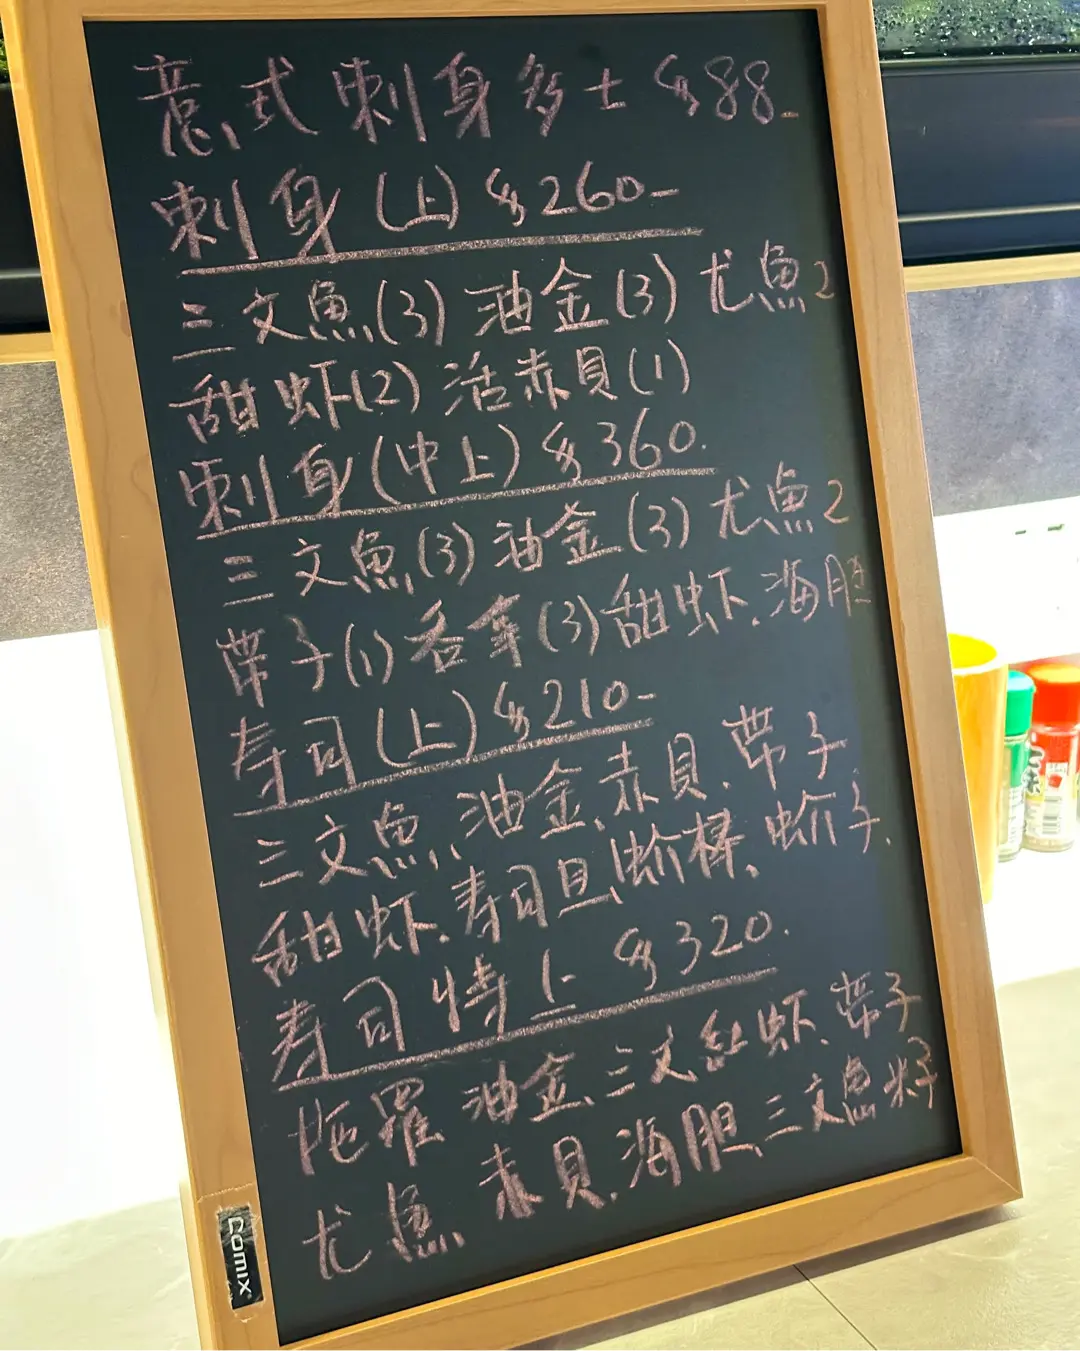 意式刺身多士 $88-
刺身(上) $260-
三文魚(3) 油金(3) 尤魚2
甜虾(2) 活赤貝(1)
刺身(中上) $360.
三文魚(3) 油金(3) 尤魚2
帶子(1) 吞拿(3) 甜虾.海胆
寿司(上) $210-
三文魚、油金、赤貝、帶子
甜虾.寿司旦、蚧棒、蚧子.
寿司特上 $320.
拖羅 油金、三文 紅虾、帶子
尤魚、赤貝.海胆、三文魚籽
comix